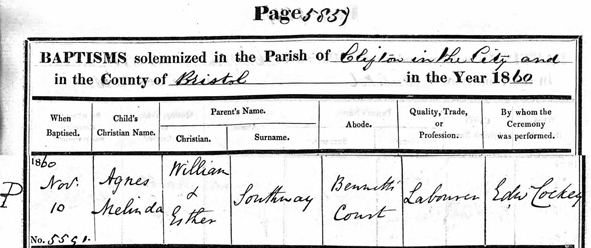 Page 585
BAPTISMS solemnized in the Parish of Clifton in the City and
in the County of Bristol in the Year 1860
When Baptised.
Child's Christian Name.
Parent's Name.
Christian.
Surname.
Abode.
Quality, Trade, or Profession.
By whom the Ceremony was performed.
1860
Nov. 10
No. 5551.
Agnes Melinda
William & Esther
Southway
Bennetts Court
Labourer
Edw Cockey
P